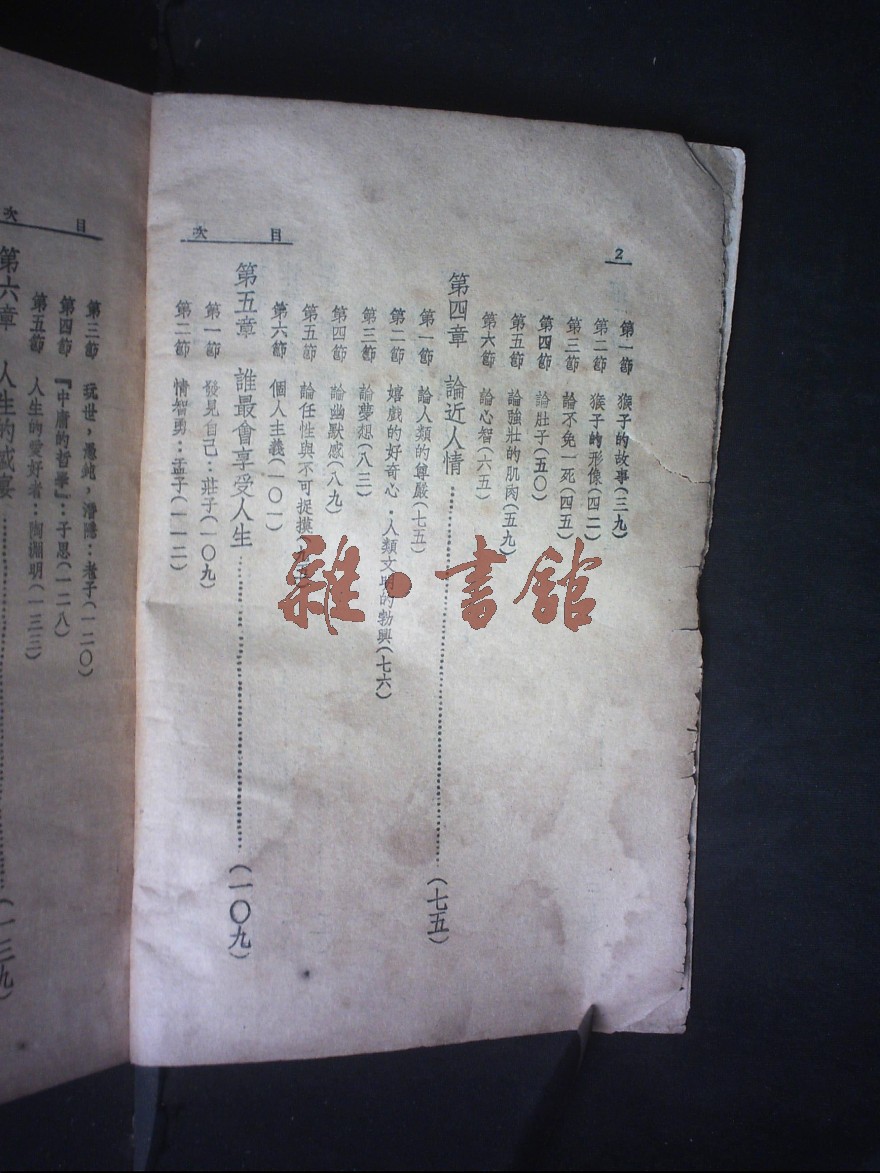 2
第一節 猴子的故事(三九)
第二節 猴子的形像(四二)
第三節 論不免一死(四五)
第四節 論肚子(五〇)
第五節 論強壯的肌肉(五九)
第六節 論心智(六五)
第四章 論近人情………(七五)
第一節 論人類的尊嚴(七五)
第二節 嬉戲的好奇心·人類文明的勃興(七六)
第三節 論夢想(八三)
第四節 論幽默感(八九)
第五節 論任性與不可捉摸
第六節 個人主義(一〇一)
第五章 誰最會享受人生………(一〇九)
第一節 發見自己:莊子(一〇九)
第二節 情智勇:孟子(一一二)
目次
第三節 玩世,愚鈍,潛隱:老子(一二〇)
第四節 『中庸的哲學』:子思(一二八)
第五節 人生的愛好者:陶淵明(一三三)
第六章 人生的盛宴………(一三九)
目次
雜·書館